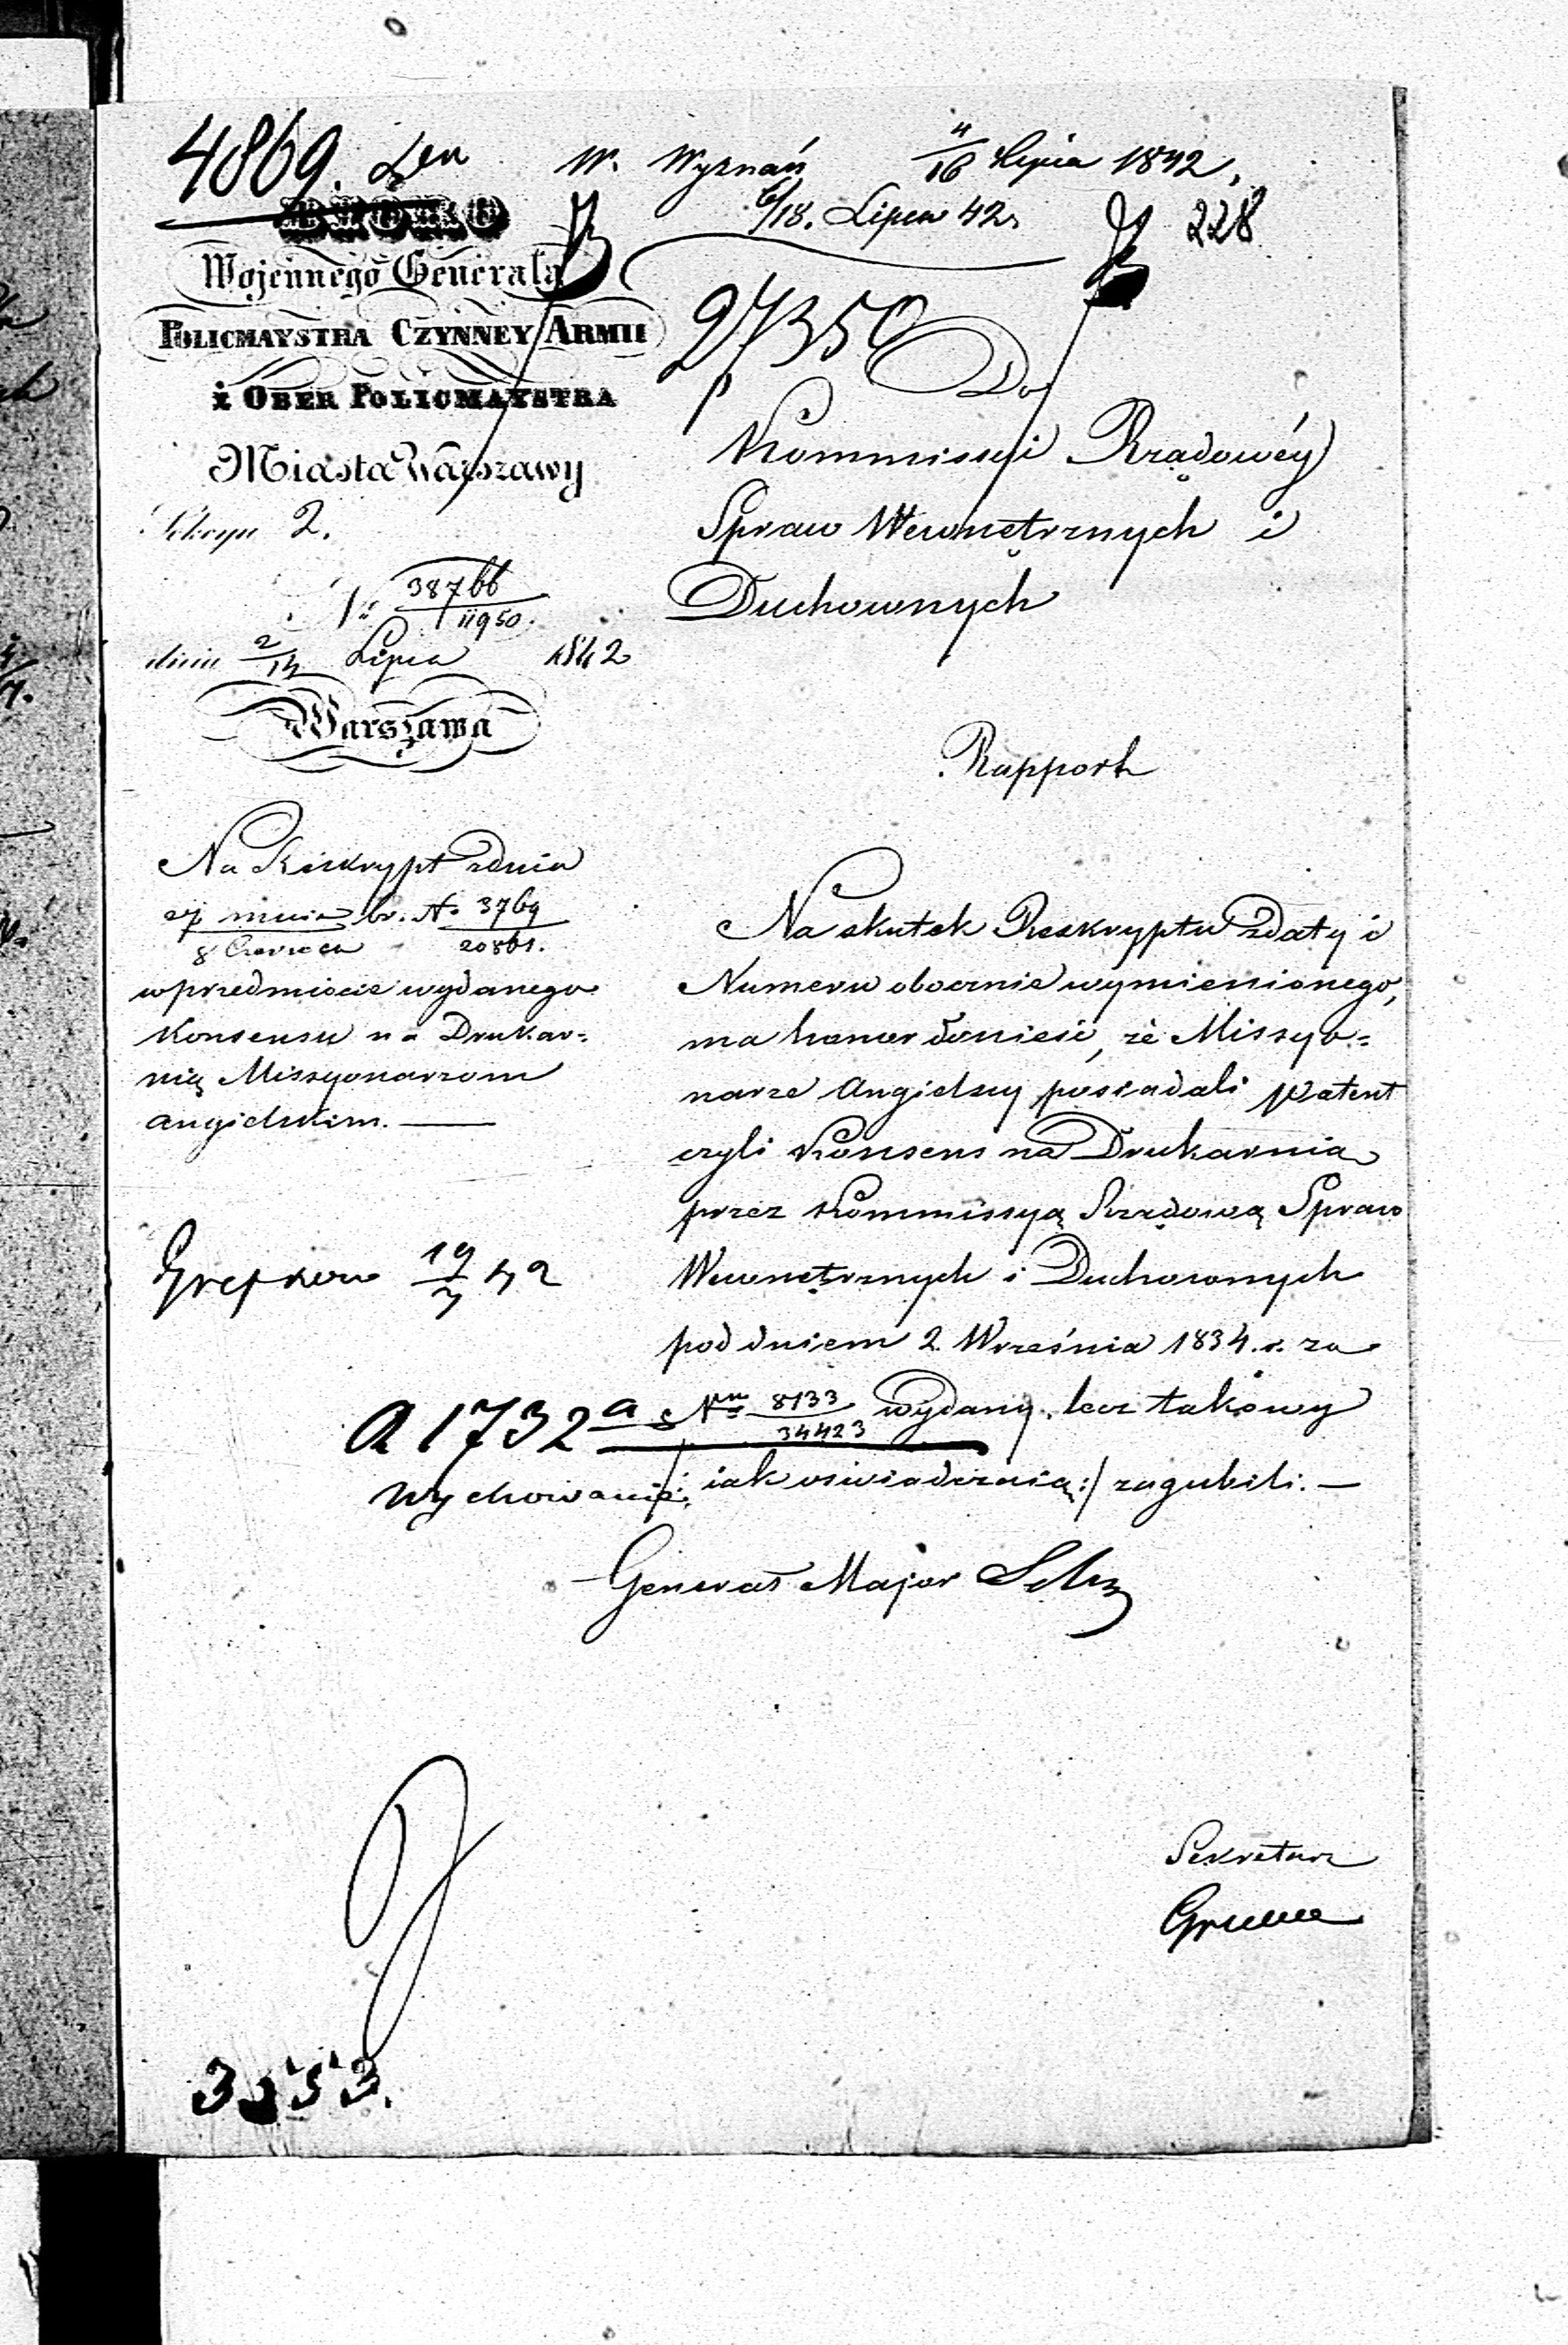 4869. W. Wyznań 4/16 Lipca 1842,
6/18. Lipca 42.
228
BIÓRO
Wojennego Generała
POLICMAYSTRA CZYNNEY ARMII
i OBER POLICMAYSTRA
Miasta Warszawy
Sekcyi 2.
No 38766/11950.
dnia 2/14 Lipca 1842
Warszawa
27350
Do
Kommissyi Rządowéy
Spraw Wewnętrznych i
Duchownych
Rapport
Na Reskrypt z dnia
27 maia/8 Czerwca br. No 3769/20861.
w przedmiocie wydanego
Konsensu na Drukar=
nią Missyonarzom
angielskim. —
Na skutek Reskryptu z daty i
Numeru obocznie wymienionego,
ma honor donieść, że Missyo=
narze Angielscy posiadali patent
czyli Konsens na Drukarnią
przez Kommissyą Rządową Spraw
Wewnętrznych i Duchownych
pod dniem 2. Września 1834. r. za
Nrm 8133/34423 wydany, lecz takowy
/: iak oświadczaią :/ zagubili. —
19/7 42
a 1732 a
Wychowanie
Generał Major
Sekretarz